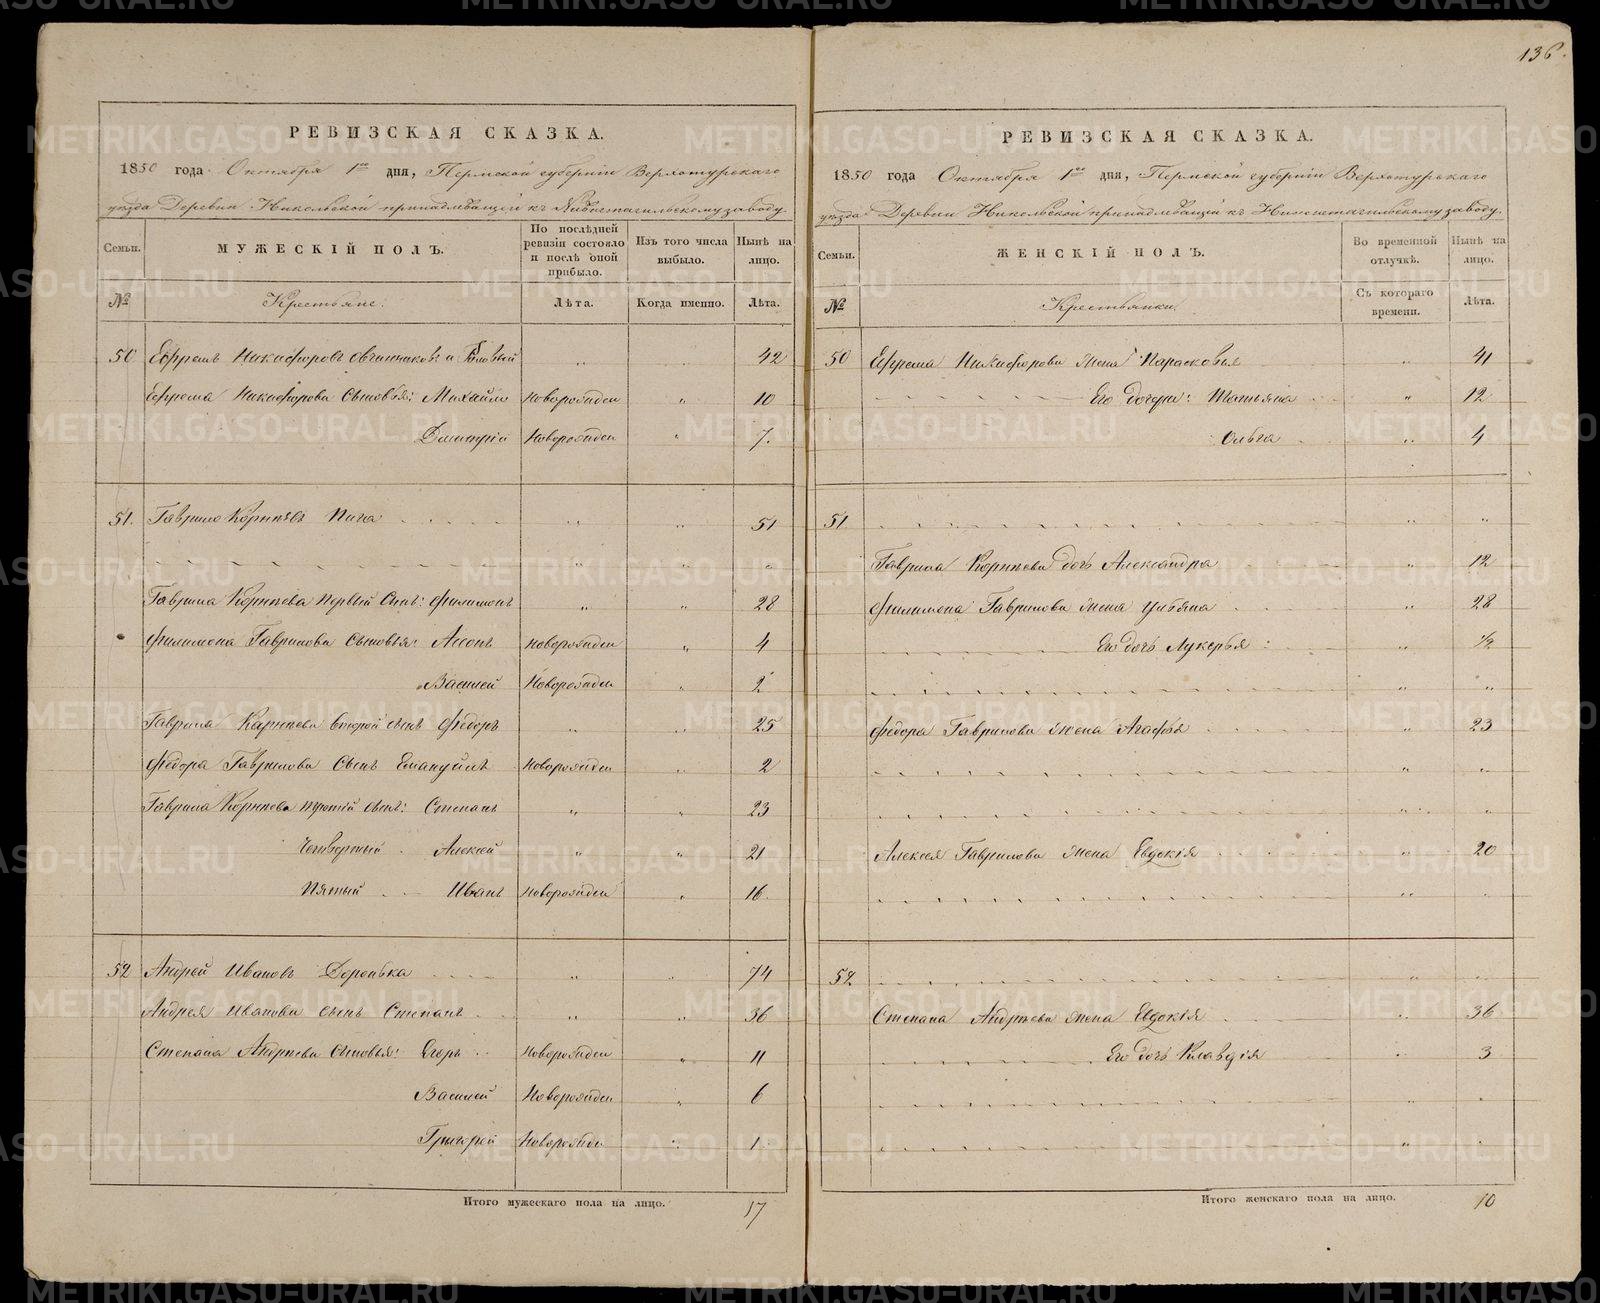 136.
РЕВИЗСКАЯ СКАЗКА.
1850 года Октября 1го дня, Пермской губерніи Верхотурскаго
уѣзда Деревни Никольской принадлѣжащей къ Нижнетагильскому заводу.
Семьи.
МУЖЕСКІЙ ПОЛЪ.
По послѣдней ревизіи состояло и послѣ оной прибыло.
Изъ того числа выбыло.
Нынѣ на лицо.
№
Крестьяне.
Лѣта.
Когда именно.
Лѣта.
50 Ефремъ Никифоровъ Овчинниковъ " " 42
Ефрема Никифорова Сыновья: Михайло Новорожден " 10
Дмитрій Новорожден " 7.
51. Гаврило Корнѣевъ " " 51
" " "
Гаврила Корнѣева Первый Сынъ: Филимонъ " " 28
Филимона Гаврилова Сыновья: Новорожден " 4
Василей Новорожден " 2
Гаврила Корнѣева Второй сынъ Федоръ " " 25
Федора Гаврилова Сынъ Емануйлъ Новорожден " 2
Гаврила Корнѣева третій сынъ: Степанъ " " 23
Четвертый Алексѣй " " 21
Пятый Иванъ Новорожден " 16
52 Андрей Ивановъ " " 74
Андрея Иванова сынъ Степанъ " " 36
Степана Андрѣева Сыновья: Егоръ Новорожден " 11
Василей Новорожден " 6
Григорей Новорожден " 1
Итого мужескаго пола на лицо. 17
РЕВИЗСКАЯ СКАЗКА.
1850 года Октября 1го дня, Пермской губерніи Верхотурскаго
уѣзда Деревни Никольской принадлѣжащей къ Нижнетагильскому заводу.
Семьи.
ЖЕНСКІЙ ПОЛЪ.
Во временной отлучкѣ.
Нынѣ на лицо.
№
Крестьянки.
Съ котораго времени.
Лѣта.
50 Ефрема Никифорова жена Парасковья " 41
Его дочери: Татьяна " 12
Ольга " 4
51 " "
Гаврила Корнѣева дочь Александра " 12
Филимона Гаврилова жена Ульяна " 28
Его дочь Лукерья " 1/2
" "
Федора Гаврилова жена Агафья " 23
" "
" "
Алексея Гаврилова жена Евдокія " 20
" "
52. " "
Степана Андрѣева жена Евдокія " 36
Его дочь Клавдія " 3
" "
" "
Итого женскаго пола на лицо. 10
METRIKI.GASO-URAL.RU